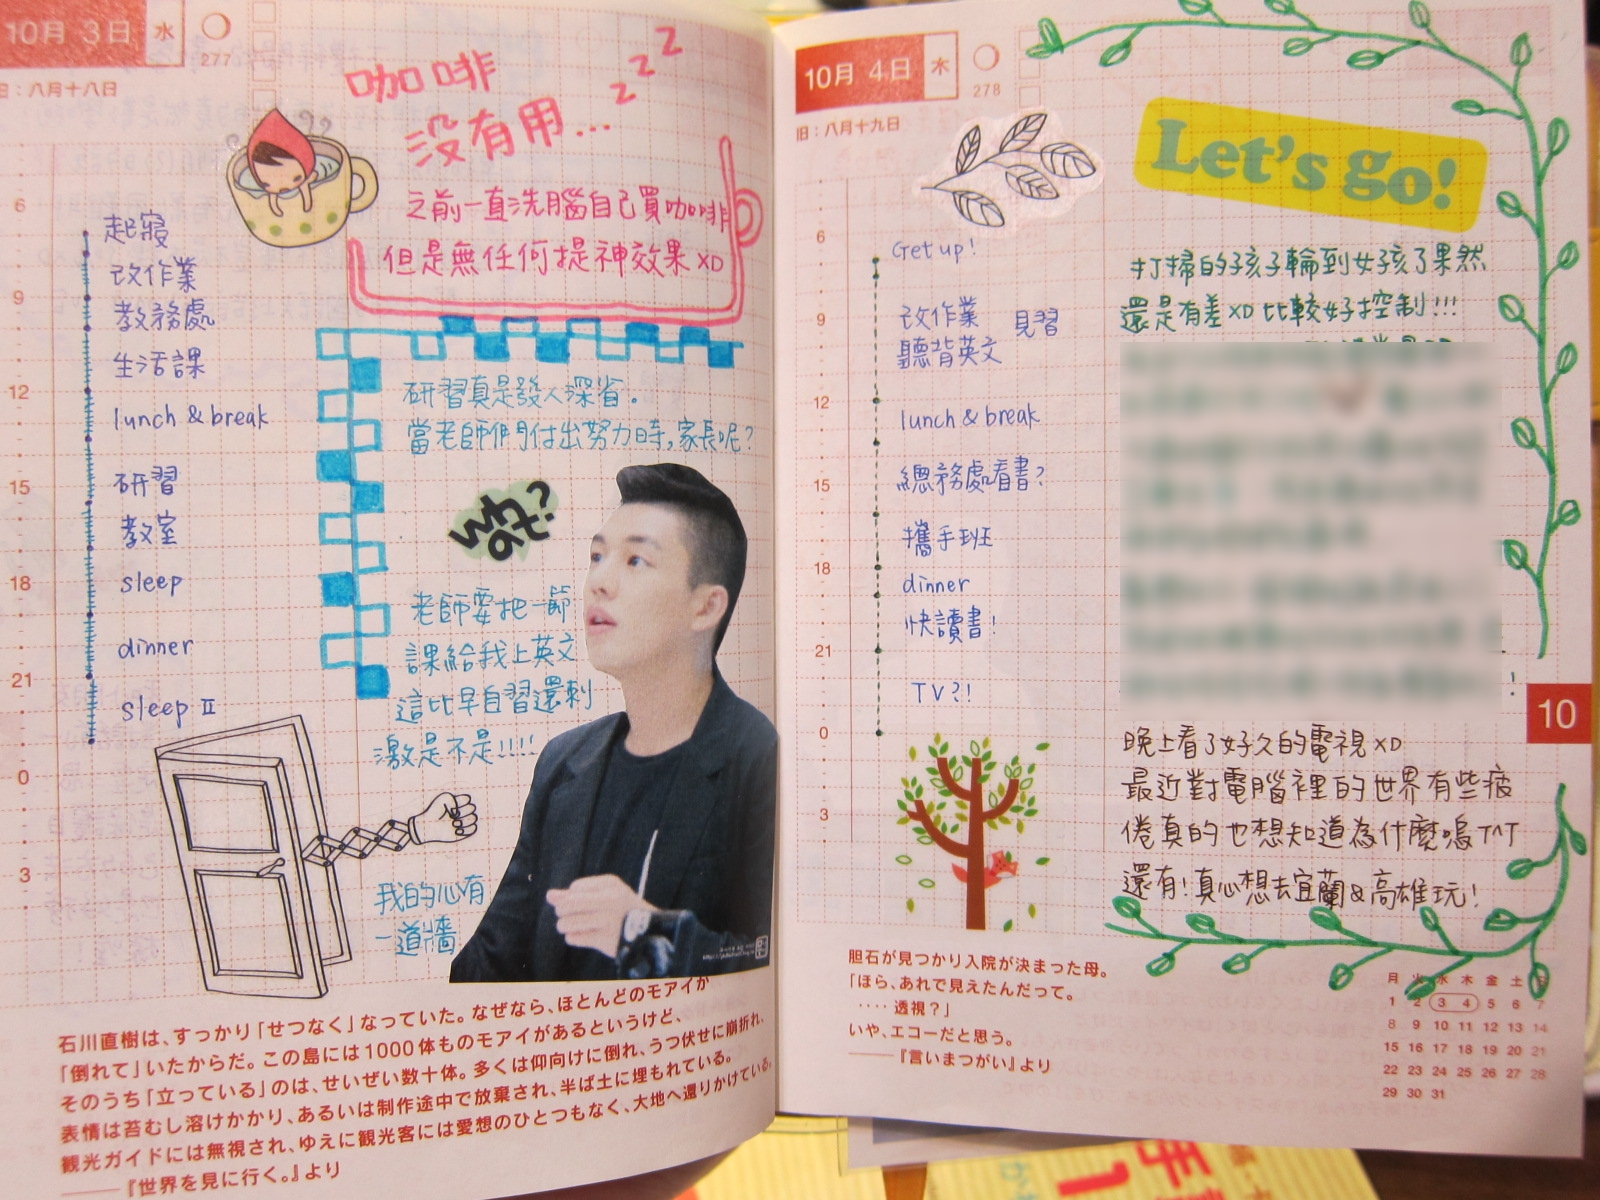 10月 3日 水
277
旧：八月十八日
咖啡
没有用...
z z z
之前一直洗腦自己買咖啡
但是無任何提神效果XD
6
9
12
15
18
21
0
3
起寢
改作業
教務處
生活課
lunch & break
研習
教室
sleep
dinner
sleep II
研習真是發人深省。
當老師們付出努力時,家長呢?
what?
老師要把一節
課給我上英文
這比早自習還刺
激是不是!!!!
我的心有
一道牆
石川直樹は、すっかり「せつなく」なっていた。なぜなら、ほとんどのモアイが
「倒れて」いたからだ。この島には1000体ものモアイがあるというけど、
そのうち「立っている」のは、せいぜい数十体。多くは仰向けに倒れ、うつ伏せに崩折れ、
表情は苔むし溶けかかり、あるいは制作途中で放棄され、半ば土に埋もれている。
観光ガイドには無視され、ゆえに観光客には愛想のひとつもなく、大地へ還りかけている。
――『世界を見に行く。』より
10月 4日 木
278
旧：八月十九日
Let's go!
6
9
12
15
18
21
0
3
Get up!
改作業 見習
聽背英文
lunch & break
總務處看書?
攜手班
dinner
快讀書!
TV?!
打掃的孩子輪到女孩了果然
還是有差XD比較好控制!!!
!
10
晚上看了好久的電視XD
最近對電腦裡的世界有些疲
倦真的也想知道為什麼嗚T^T
還有!真心想去宜蘭&高雄玩!
胆石が見つかり入院が決まった母。
「ほら、あれで見えたんだって。
‥‥透視？」
いや、エコーだと思う。
――『言いまつがい』より
月 火 水 木 金 土 日
1 2 3 4 5 6 7
8 9 10 11 12 13 14
15 16 17 18 19 20 21
22 23 24 25 26 27 28
29 30 31